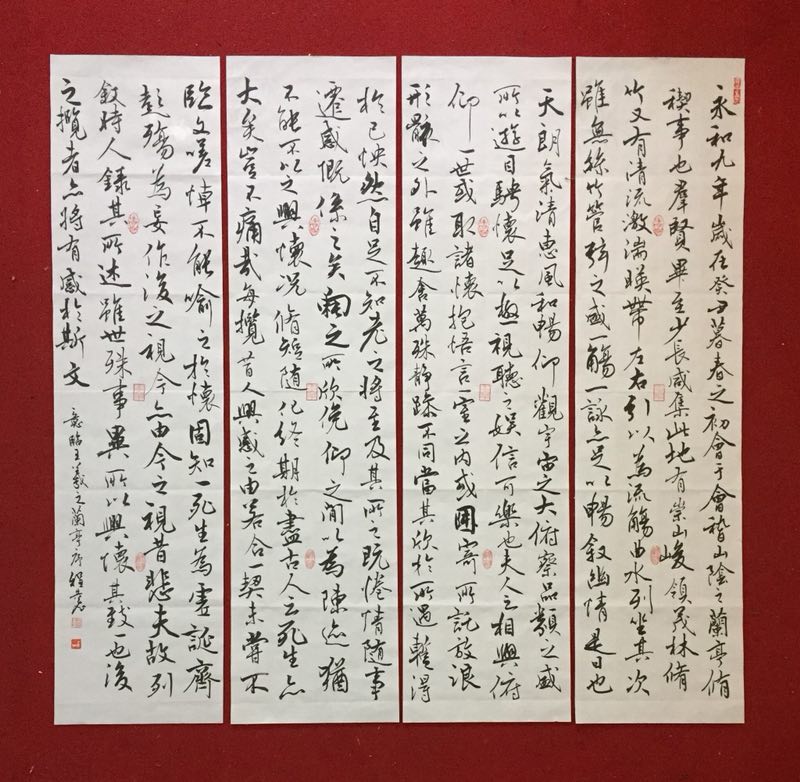 永和九年歲在癸丑暮春之初會于會稽山陰之蘭亭脩
禊事也羣賢畢至少長咸集此地有崇山峻領茂林脩
竹又有清流激湍暎帶左右引以為流觴曲水列坐其次
雖無絲竹管弦之盛一觴一詠亦足以暢敘幽情是日也
天朗氣清惠風和暢仰觀宇宙之大俯察品類之盛
所以遊目騁懷足以極視聽之娛信可樂也夫人之相與俯
仰一世或取諸懷抱悟言一室之內或因寄所託放浪
形骸之外雖趣舍萬殊靜躁不同當其欣於所遇暫得
於己怏然自足不知老之將至及其所之既惓情隨事
遷感慨係之矣向之所欣俛仰之間以為陳迹猶
不能不以之興懷況脩短隨化終期於盡古人云死生亦
大矣豈不痛哉每攬昔人興感之由若合一契未嘗不
臨文嗟悼不能喻之於懷固知一死生為虛誕齊
彭殤為妄作後之視今亦由今之視昔悲夫故列
敘時人錄其所述雖世殊事異所以興懷其致一也後
之攬者亦將有感於斯文
意臨王羲之蘭亭序程